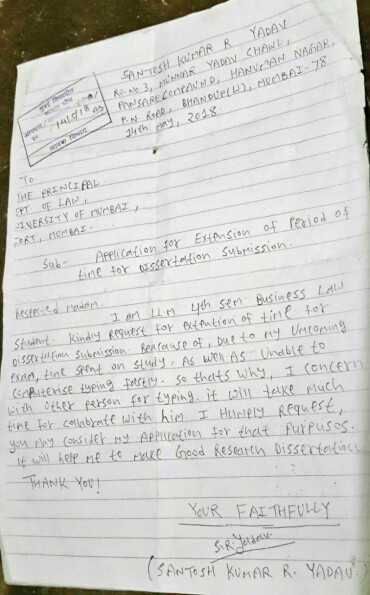 SANTOSH KUMAR R YADAV
R.NO.3, MUNNAR YADAV CHAWL,
PANSARE COMPAUND, HANUMAN NAGAR,
P.N ROAD, BHANDUP(W), MUMBAI-78
14th May, 2018
मुंबई विद्यापीठ
14/5/18
आवक विभाग
To
THE PRINCIPAL
EPT OF LAW,
NIVERSITY OF MUMBAI,
FORT, MUMBAI-
Sub- Application for Extension of Period of
time for Dissertation Submission.
Respected madam.
I am LLM 4th sem Business Law
Student. Kindly Request for extention of time for
Dissertation Submission. Beacause of, Due to my Umcoming
exam, time spent on study. As well As Unable to
Computerise typing fastly. So thats why, I concern
with other person for typing. it will take much
time for collabrate with him. I Humply Request,
you May consider my Application for that Purpusos.
it will help me to make Good Research Dissertation
THANK YOU!
YOUR FAITHFULLY
S.R.Yadav.
(SANTOSH KUMAR R. YADAV.)